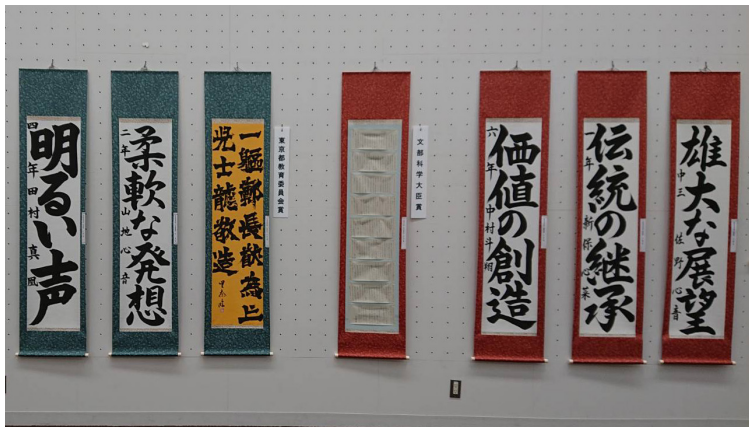 明るい声
四年 田村真凰
柔軟な発想
二年 山地心音
一軀郭長猷為亡
児士龍敬造
東京都教育委員会賞
文部科学大臣賞
価値の創造
六年 中村斗
伝統の継承
一年 新保心菜
雄大な展望
中三 佐野心音